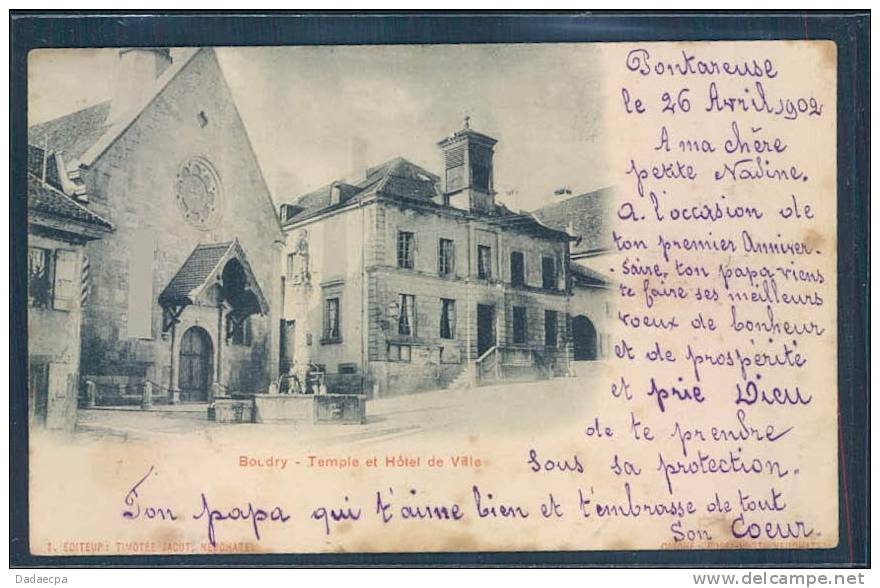 Pontareuse
le 26 Avril 1902
A ma chère
petite Nadine.
A l'occasion de
ton premier Anniver-
-saire, ton papa viens
te faire ses meilleurs
voeux de bonheur
et de prospérité
et prie Dieu
de te prendre
sous sa protection.
Boudry - Temple et Hôtel de Ville
Ton papa qui t'aime bien et t'embrasse de tout
Son Coeur.
EDITEUR: TIMOTÉE JACOT, NEUCHATEL
Dadaecpa
www.delcampe.net